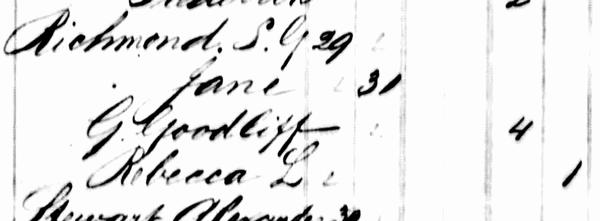 Frederick 2
Richmond. S. G 29
Jane 31
G. Goodliff 4
Rebecca L 1
Stewart Alexander 30